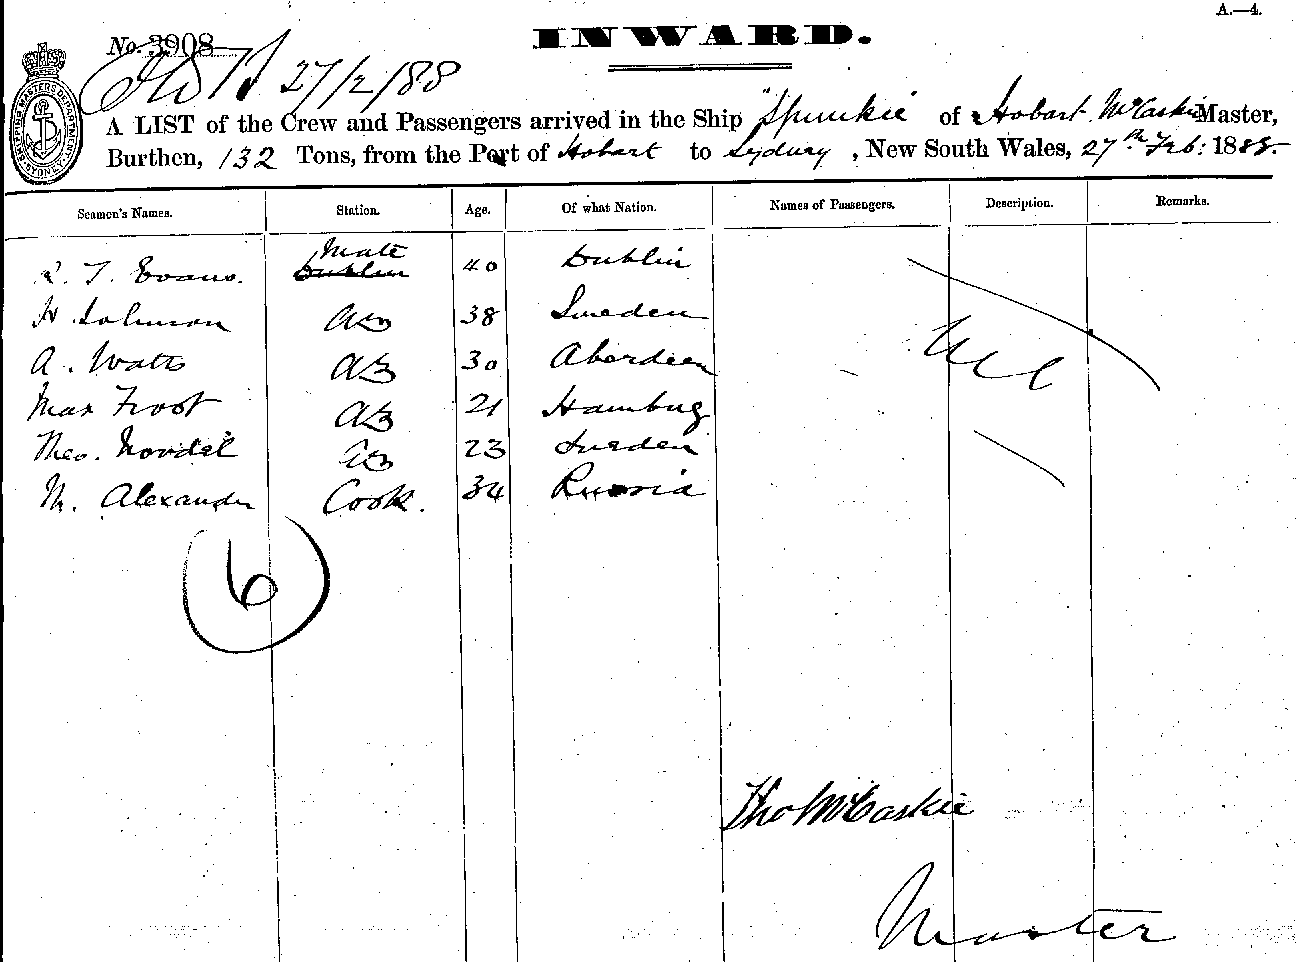 A.—4.
No. 3908
INWARD.
27/2/88
SHIPPING MASTERS DEPARTMENT SYDNEY
A LIST of the Crew and Passengers arrived in the Ship "Spunkie of Hobart McCaskie Master,
Burthen, 132 Tons, from the Port of Hobart to Sydney, New South Wales, 27th Feb: 1888.
Seamen's Names. Station. Age. Of what Nation. Names of Passengers. Description. Remarks.
R. T. Evans. Mate Dublin 40 Dublin
H Johnson AB 38 Sweden
A. Watts AB 30 Aberdeen
Max Frost AB 21 Hamburg
Theo. Nordel AB 23 Sweden
M. Alexander Cook. 34 Russia
Nil
6
Tho McCaskie
Master